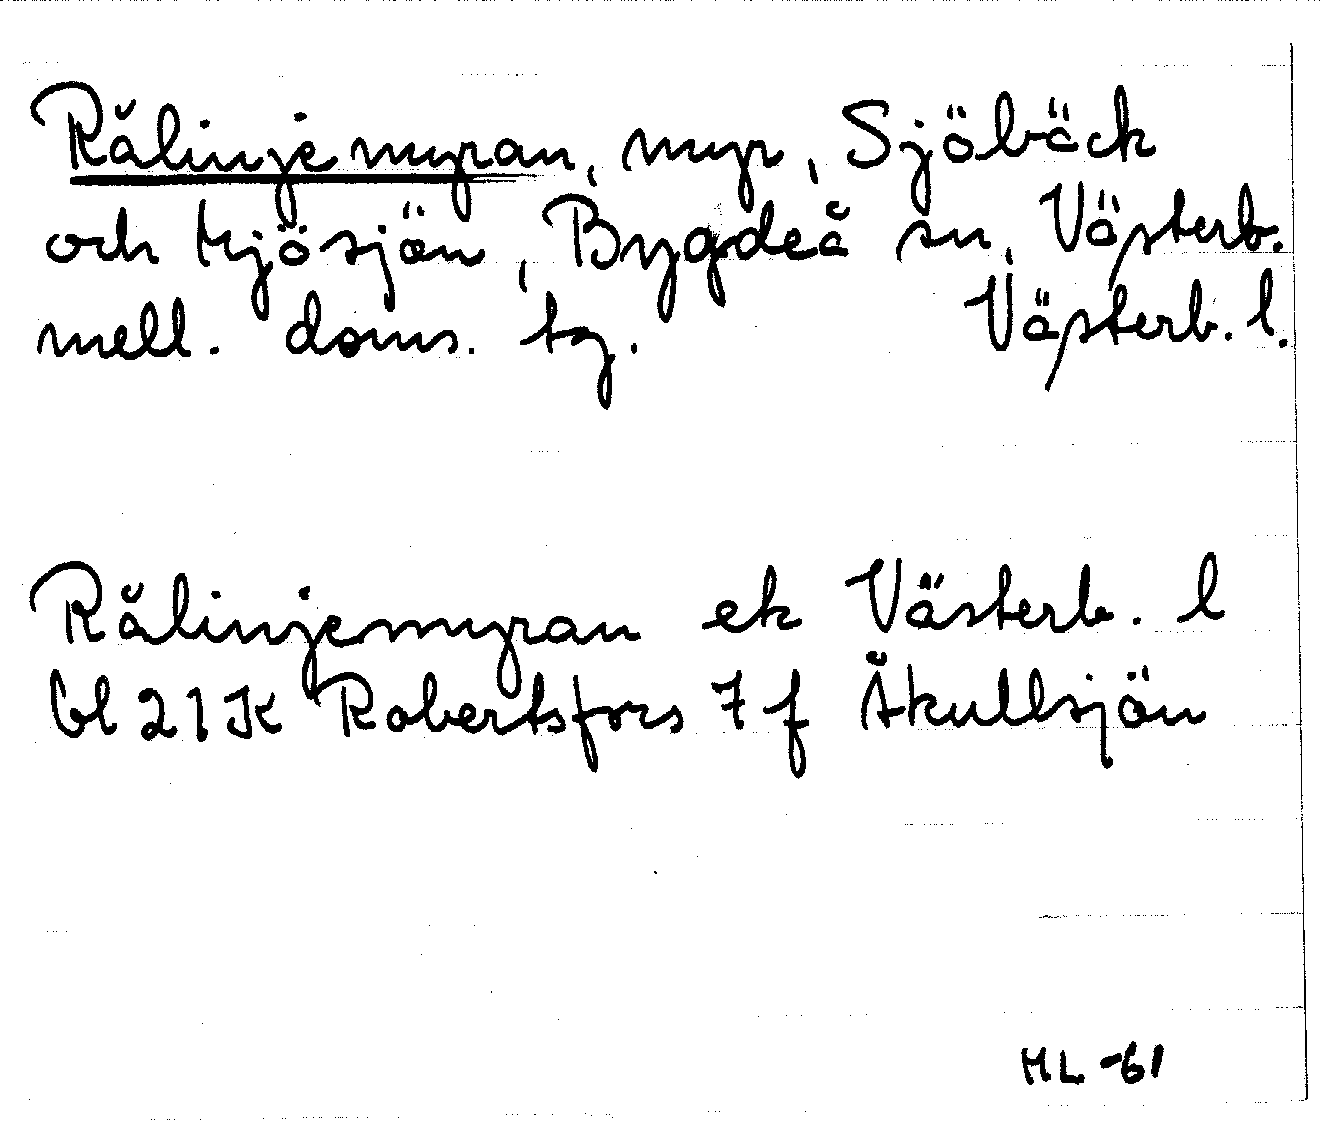 Rålinjemyran, myr, Sjöbäck
och Mjösjön, Bygdeå sn, Västerb.
mell. doms. tg. Västerb. l.
Rålinjemyran ek Västerb. l
bl 21K Robertsfors 7 f Åkullsjön
ML -61